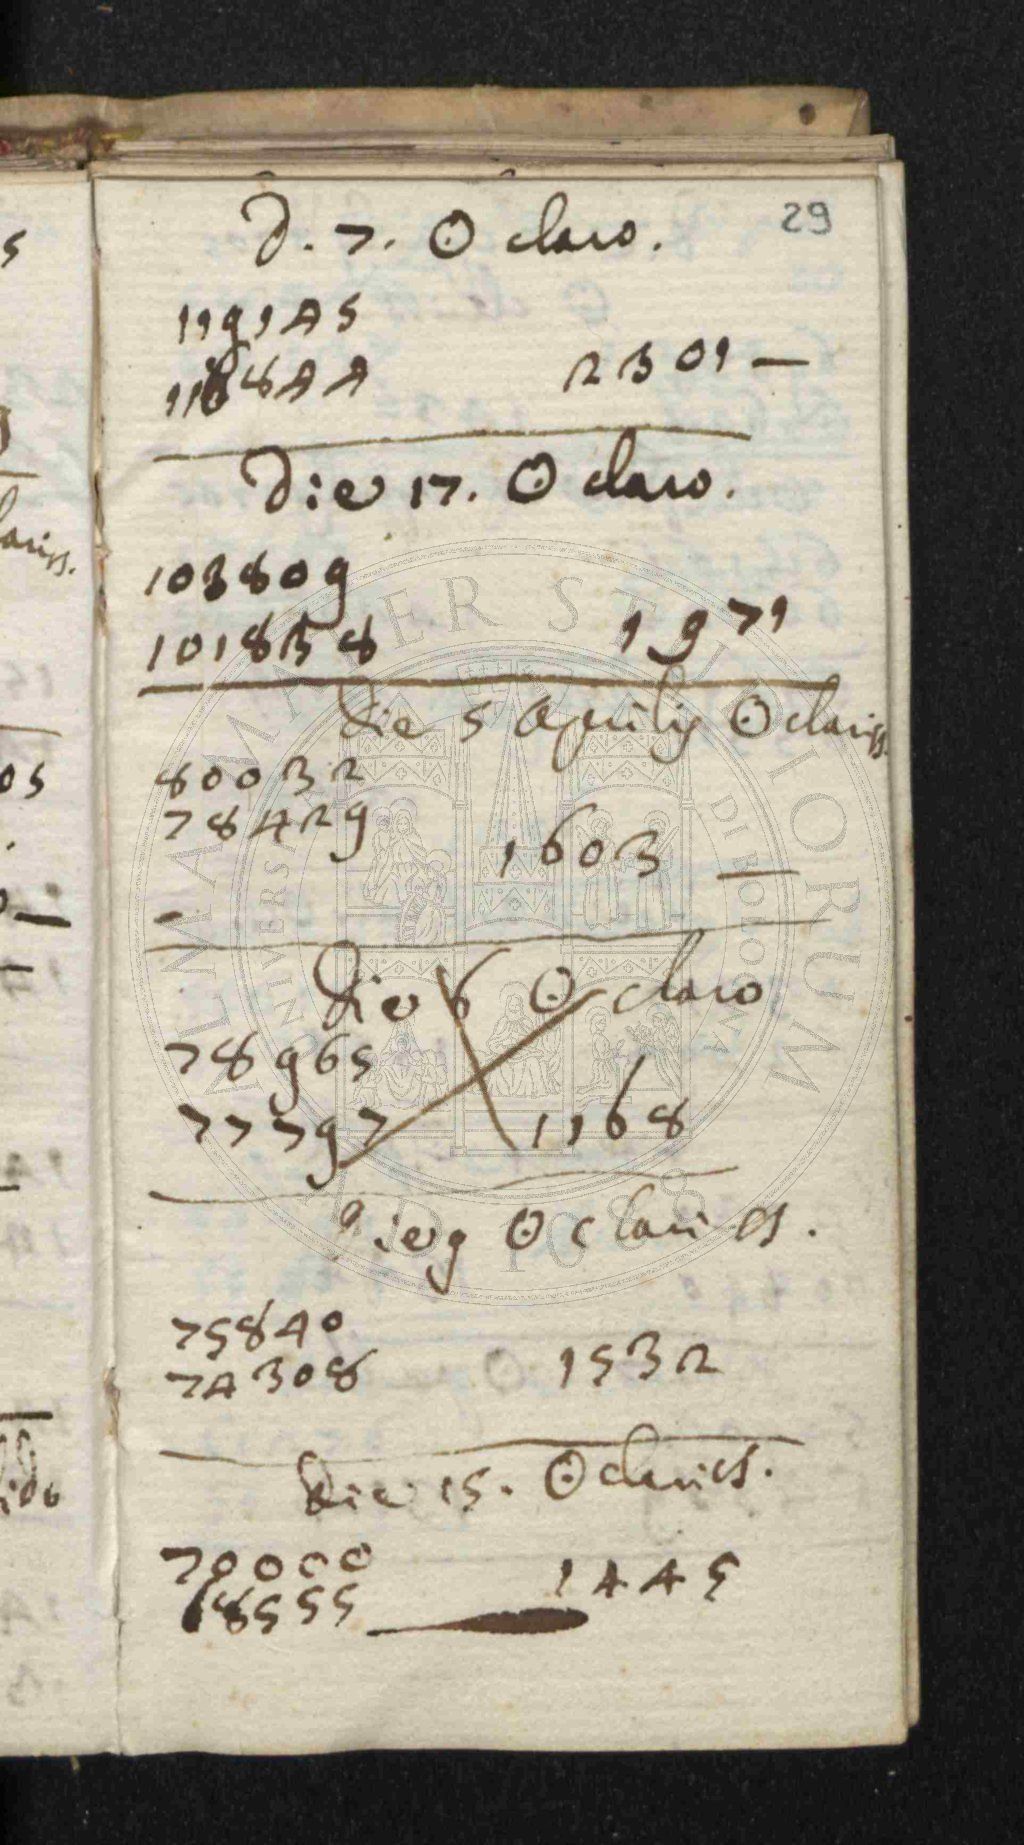 29
D. 7. ☉ claro.
119145
116844 2301 —
Die 17. ☉ claro.
103809
101838 1971
Die 5 Aprilis ☉ clariss.
80032
78429 1603 —
Die 6 ☉ claro
78965
77797 1168
Die 9 ☉ clariss.
75840
74308 1532
Die 15. ☉ clariss.
70000 1445
68555
ALMA MATER STUDIORUM
A.D. 1088